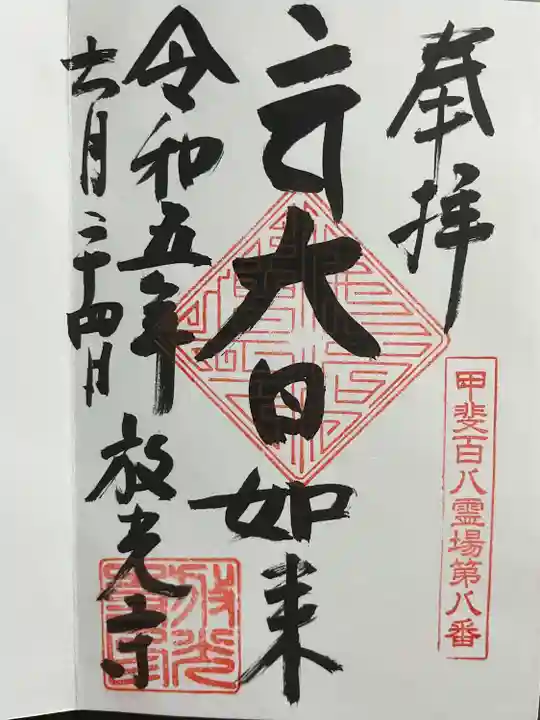 奉拝
甲斐百八霊場第八番
大日如来
令和五年
十一月二十四日
放光寺